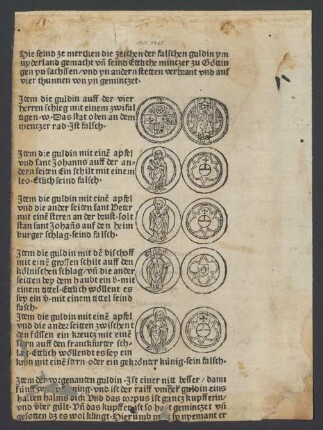 Hie seind ze mercken die zeichen der falschen guldin ym
nyderland gemacht vñ seind Etthe mintzer zu Götin
gen yn sachssen / vnd yn andern stetten verbrant vnd auf
vier thunnen von yn gemintzet.
Item die guldin auff der vier
herren schleg mit einem zwifal
tigen ‧w‧ Das stat oben an dem
mentzer rad ‧ Ist falsch.
Item die guldin mit einē apfel
vnd sant Johanns auff der an
dern seiten Ein schilt mit einem
leo ‧ Etlich seind falsch.
Item die guldin mit einē apfel
vnd die ander seiten sant Peter
mit einē steren an der brust ‧ solt
stan sant Johañs auff den heim
burger schlag ‧ seind falsch.
Item die guldin mit dē bischoff
mit einē grossen schilt auff den
kölnischen schlag / vñ die ander
seitten bey dem haubt ein ‧v‧ mit
einem tittel ‧ Etlich wöllent es
sey ein ‧v‧ mit einem tittel seind
falsch.
Item die guldin mit einē apfel
vnd die ander seitten zwischent
den füssen ein kreutz mit einē
stern auff den franckfurter sch
lag ‧ Etlich wöllendt es sey ein
kron mit einē stern ‧ oder ein gekrönter künig ‧ sein falsch.
Item der vorgenanten guldin ‧ Ist einer nitt besser / dann
fünff zwen pfenning ‧ vnd ist der raiff vmher guldin eins
halben halms dick Vnd das corpus ist gantz kupfferin /
vnd vber gült ‧ Vñ das kupffer ist so hart gemintzet vñ
gesotten dz es wol klingt ‧ Hierumb mit sy nyemant er